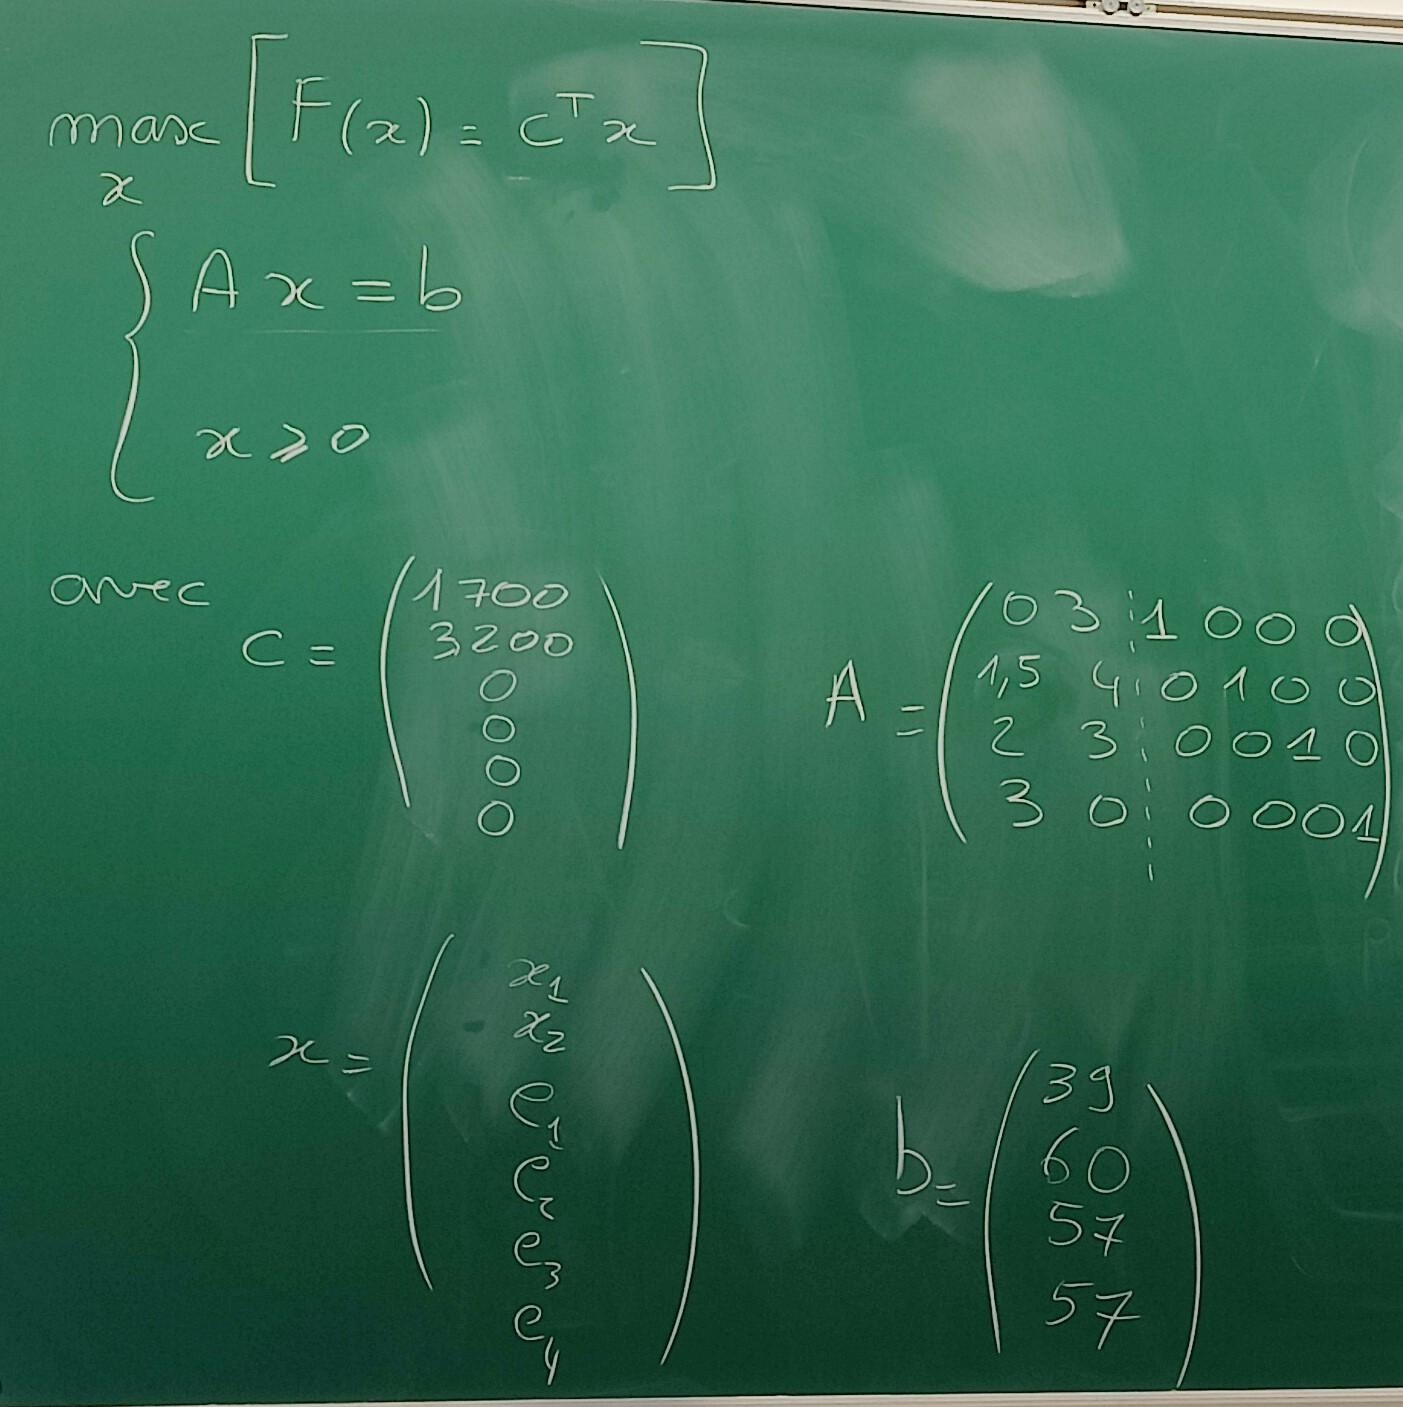 max [F(x) = cᵀx]
x
{ Ax = b
x ⩾ 0
avec
c = (1700
3200
0
0
0
0)
A = (0 3 1 0 0 0
1,5 4 0 1 0 0
2 3 0 0 1 0
3 0 0 0 0 1)
x = (x₁
x₂
e₁
e₂
e₃
e₄)
b = (39
60
57
57)